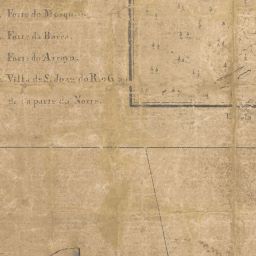 Forte do Mosqui
Forte da Barra.
Forte do Arroyo.
Villa de S. Joze do Rio G
da parte do Norte.